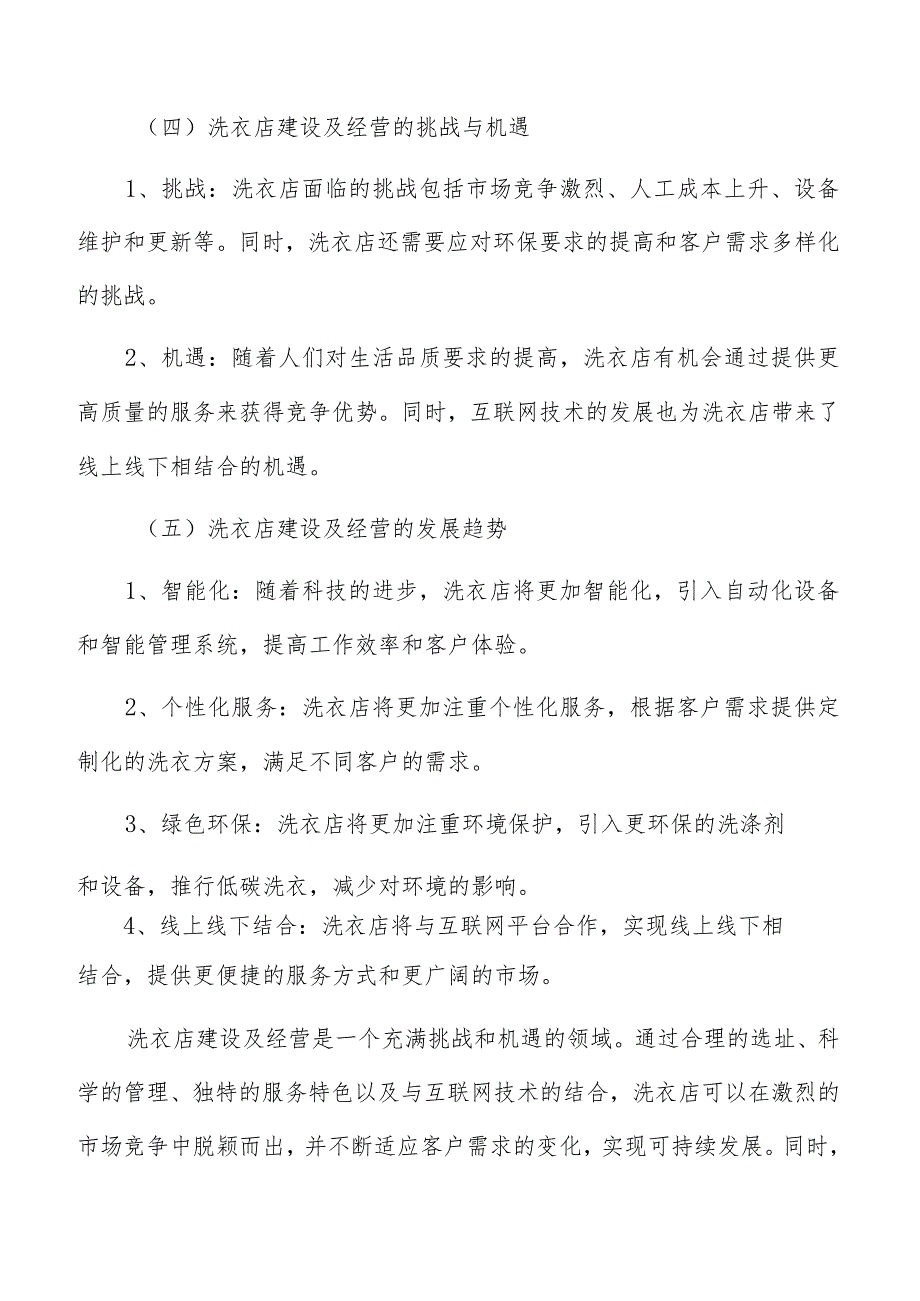 （四）洗衣店建设及经营的挑战与机遇
1、挑战：洗衣店面临的挑战包括市场竞争激烈、人工成本上升、设备
维护和更新等。同时，洗衣店还需要应对环保要求的提高和客户需求多样化
的挑战。
2、机遇：随着人们对生活品质要求的提高，洗衣店有机会通过提供更
高质量的服务来获得竞争优势。同时，互联网技术的发展也为洗衣店带来了
线上线下相结合的机遇。
（五）洗衣店建设及经营的发展趋势
1、智能化：随着科技的进步，洗衣店将更加智能化，引入自动化设备
和智能管理系统，提高工作效率和客户体验。
2、个性化服务：洗衣店将更加注重个性化服务，根据客户需求提供定
制化的洗衣方案，满足不同客户的需求。
3、绿色环保：洗衣店将更加注重环境保护，引入更环保的洗涤剂
和设备，推行低碳洗衣，减少对环境的影响。
4、线上线下结合：洗衣店将与互联网平台合作，实现线上线下相
结合，提供更便捷的服务方式和更广阔的市场。
洗衣店建设及经营是一个充满挑战和机遇的领域。通过合理的选址、科
学的管理、独特的服务特色以及与互联网技术的结合，洗衣店可以在激烈的
市场竞争中脱颖而出，并不断适应客户需求的变化，实现可持续发展。同时，